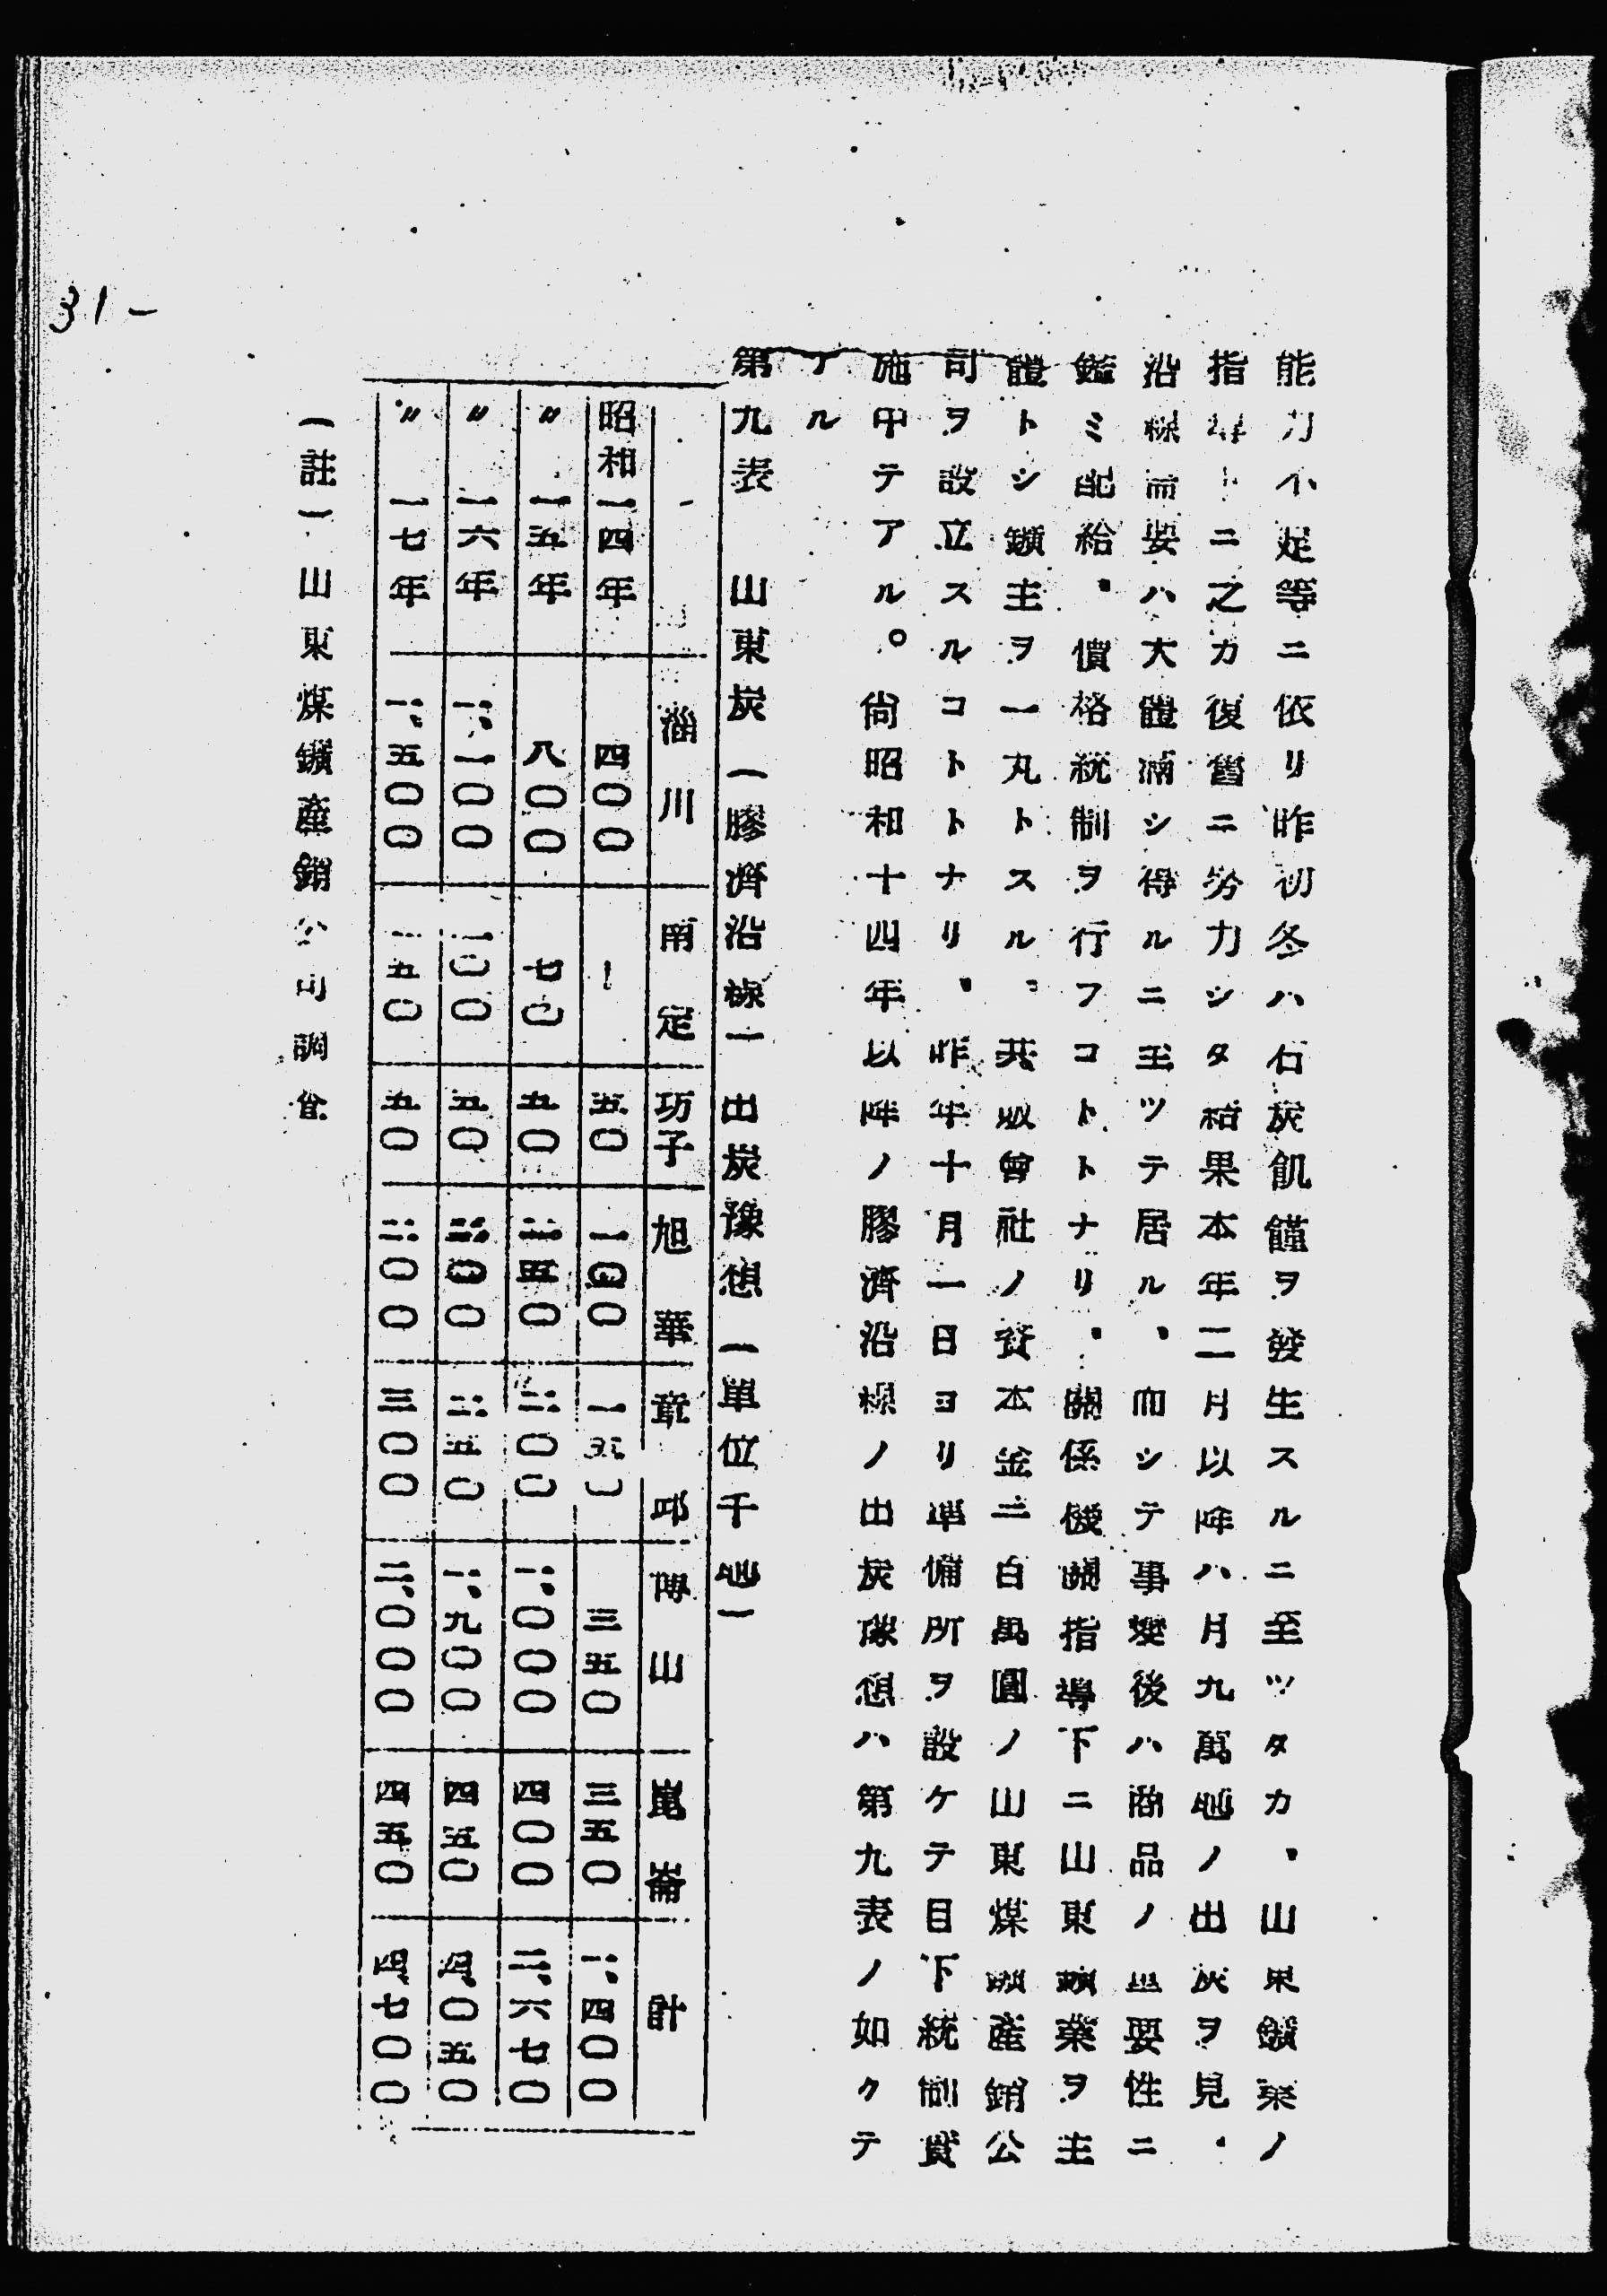 能力不足等ニ依リ昨初冬ハ石炭飢饉ヲ發生スルニ至ツタカ、山東鑛業ノ
指導ト二之カ復舊ニ努力シタ結果本年二月以降ハ月九萬瓲ノ出炭ヲ見、
沿線需要ハ大體滿シ得ルニ至ツテ居ル、而シテ事變後ハ商品ノ重要性ニ
鑑ミ配給、價格統制ヲ行フコトトナリ、關係機關指導下ニ山東鑛業ヲ主
體トシ鑛主ヲ一丸トスル、共販會社ノ資本金三百萬圓ノ山東煤鑛產銷公
司ヲ設立スルコトトナリ、昨年十月一日ヨリ準備所ヲ設ケテ目下統制實
施中テアル。尙昭和十四年以降ノ膠濟沿線ノ出炭豫想ハ第九表ノ如クテ
アル
第九表　山東炭（膠濟沿線）出炭豫想（單位千瓲）
淄川　南定　坊子　旭華　章邱　博山　崑崙　計
昭和一四年　四〇〇　－　五〇　一〇〇　一五〇　三五〇　三五〇　一、四〇〇
〃　一五年　八〇〇　七〇　五〇　一五〇　二〇〇　一、〇〇〇　四〇〇　二、六七〇
〃　一六年　一、一〇〇　一〇〇　五〇　二〇〇　二五〇　一、九〇〇　四五〇　四、〇五〇
〃　一七年　一、五〇〇　一五〇　五〇　二〇〇　三〇〇　二、〇〇〇　四五〇　四、七〇〇
（註）山東煤鑛產銷公司調査
31-